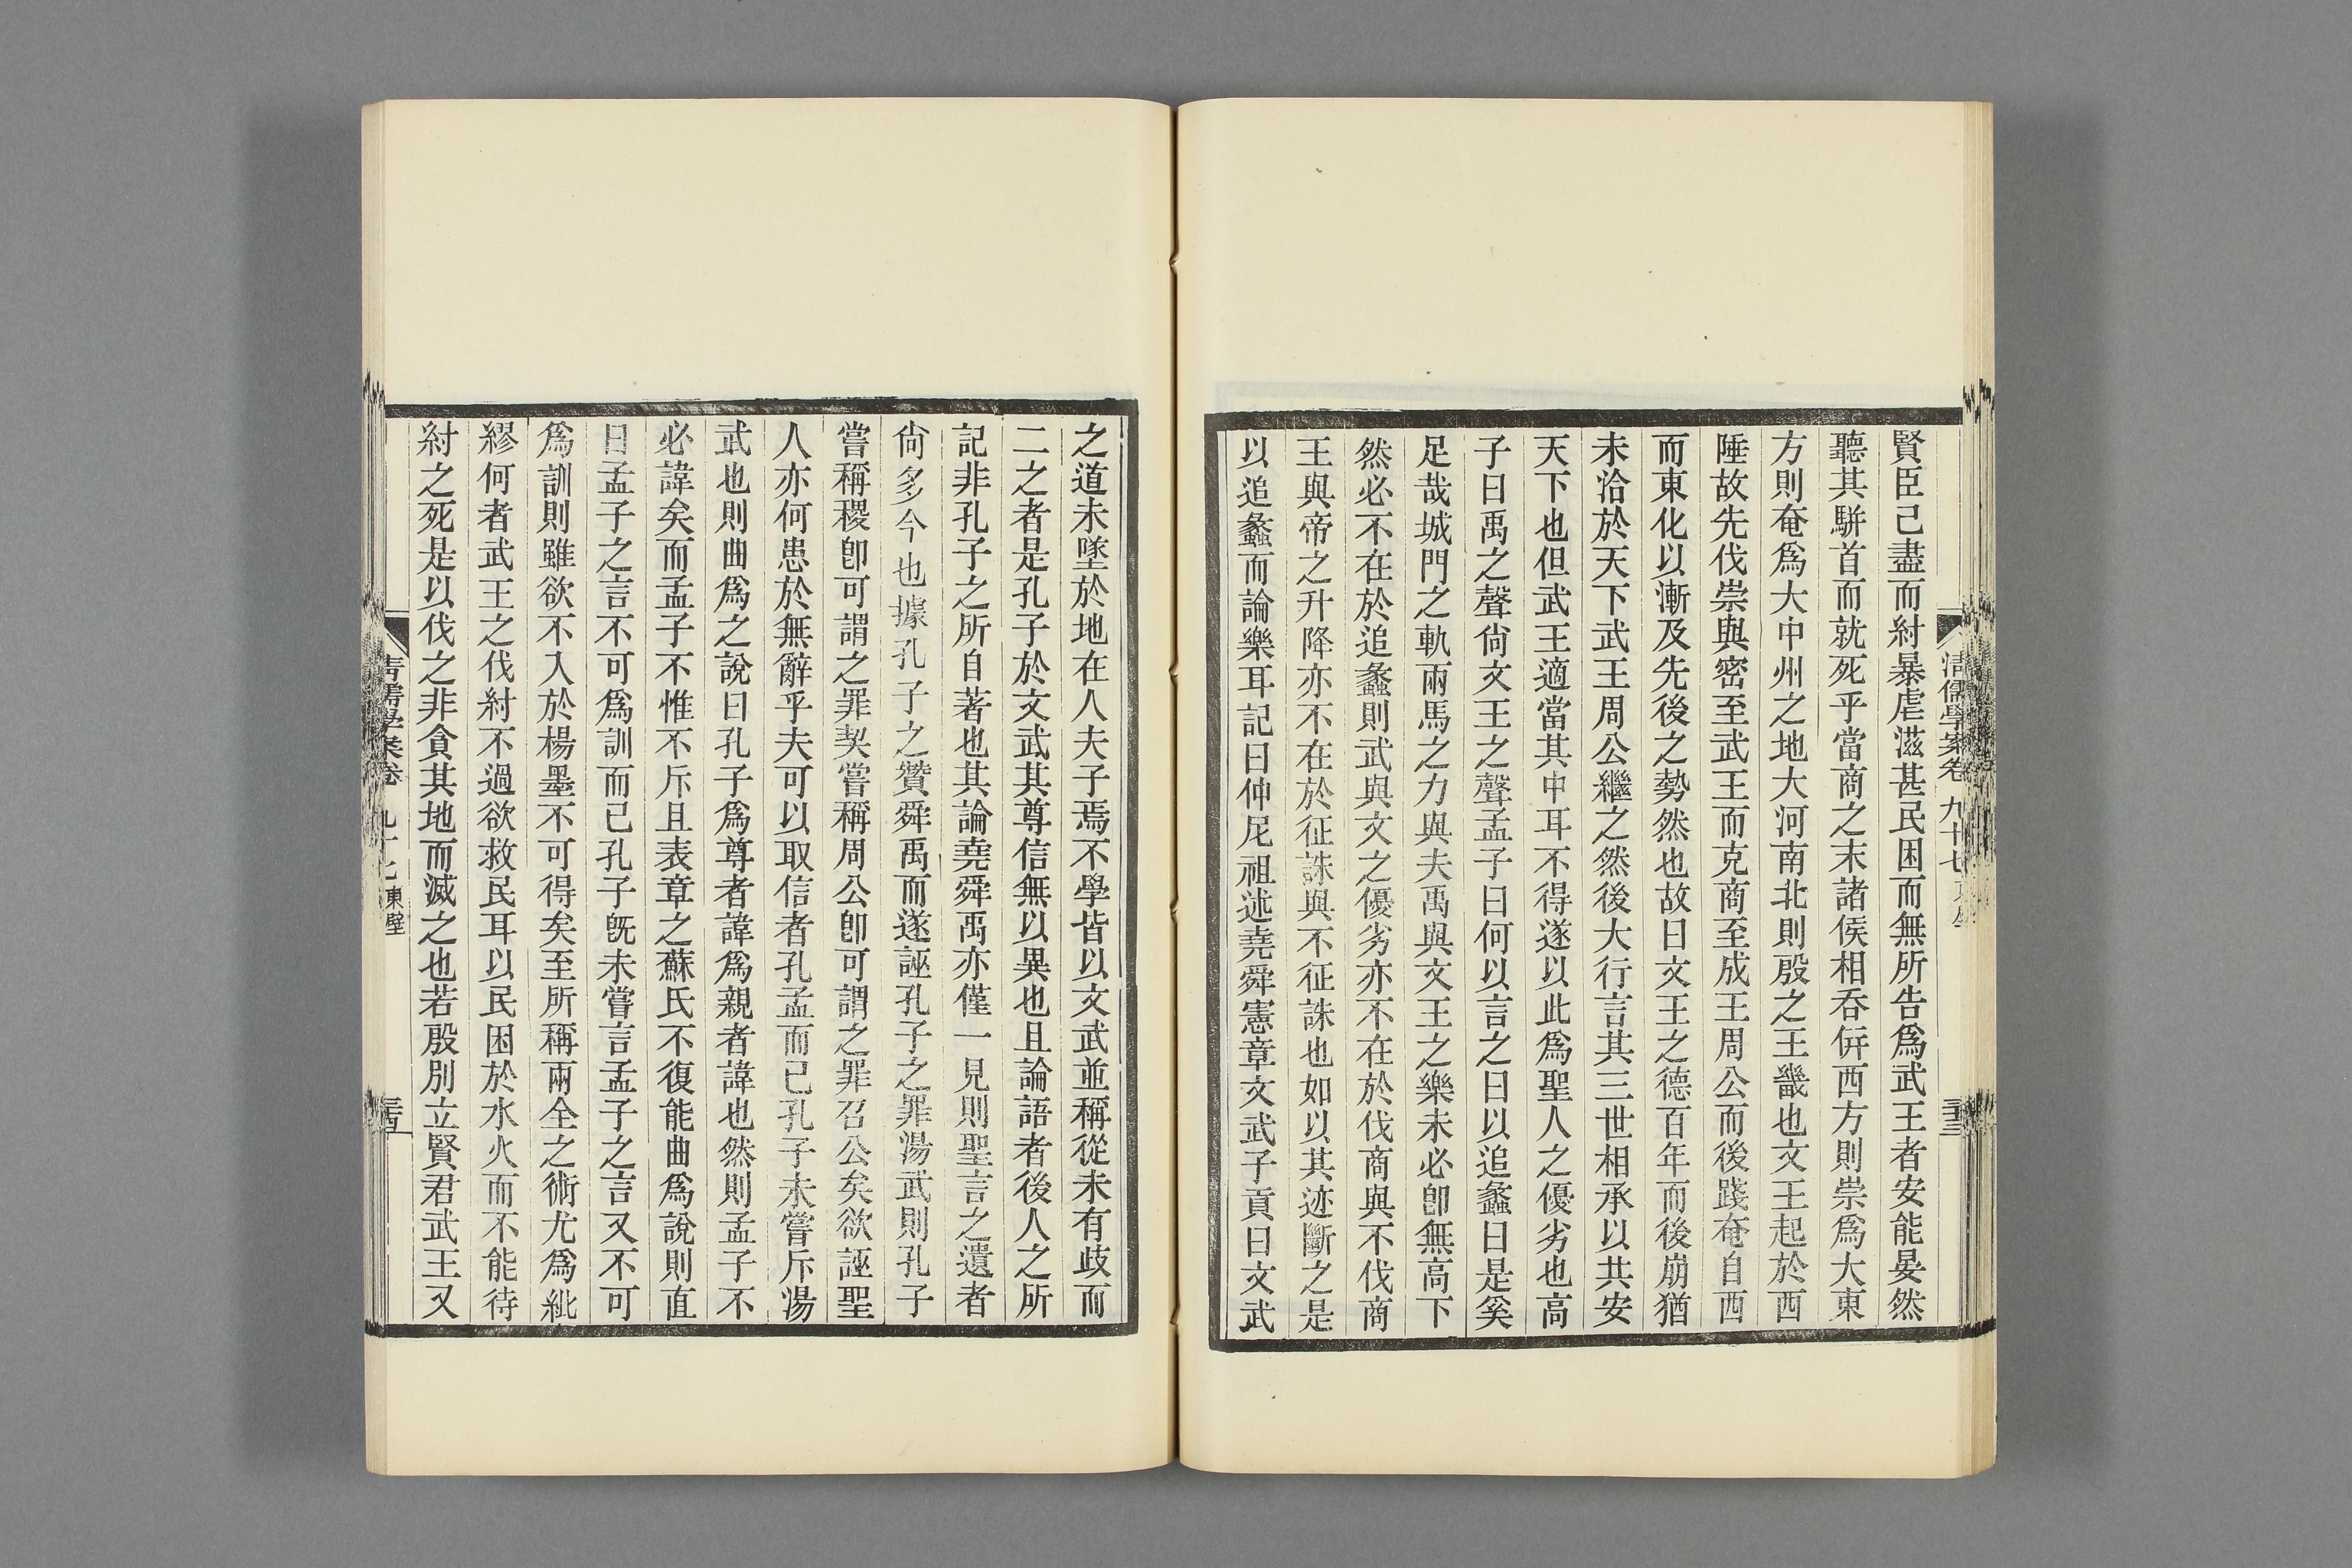 賢臣已盡而紂暴虐滋甚民困而無所告爲武王者安能晏然
聽其駢首而就死乎當商之末諸侯相呑併西方則崇爲大東
方則奄爲大中州之地大河南北則殷之王畿也文王起於西
陲故先伐崇與密至武王而克商至成王周公而後踐奄自西
而東化以漸及先後之勢然也故曰文王之德百年而後崩猶
未洽於天下武王周公繼之然後大行言其三世相承以共安
天下也但武王適當其中耳不得遂以此爲聖人之優劣也高
子曰禹之聲尙文王之聲孟子曰何以言之曰以追蠡曰是奚
足哉城門之軌兩馬之力與夫禹與文王之樂未必卽無高下
然必不在於追蠡則武與文之優劣亦不在於伐商與不伐商
王與帝之升降亦不在於征誅與不征誅也如以其迹斷之是
以追蠡而論樂耳記曰仲尼祖述堯舜憲章文武子貢曰文武
清儒學案卷九十七
三十三
之道未墜於地在人夫子焉不學皆以文武並稱從未有歧而
二之者是孔子於文武其尊信無以異也且論語者後人之所
記非孔子之所自著也其論堯舜禹亦僅一見則聖言之遺者
尙多今也據孔子之贊舜禹而遂誣孔子之罪湯武則孔子
嘗稱稷卽可謂之罪契嘗稱周公卽可謂之罪召公矣欲誣聖
人亦何患於無辭乎夫可以取信者孔孟而已孔子未嘗斥湯
武也則曲爲之說曰孔子爲尊者諱爲親者諱也然則孟子不
必諱矣而孟子不惟不斥且表章之蘇氏不復能曲爲說則直
曰孟子之言不可爲訓而已孔子旣未嘗言孟子之言又不可
爲訓則雖欲不入於楊墨不可得矣至所稱兩全之術尤爲紕
繆何者武王之伐紂不過欲救民耳以民困於水火而不能待
紂之死是以伐之非貪其地而滅之也若殷別立賢君武王又
清儒學案卷九十七 東壁
三十四